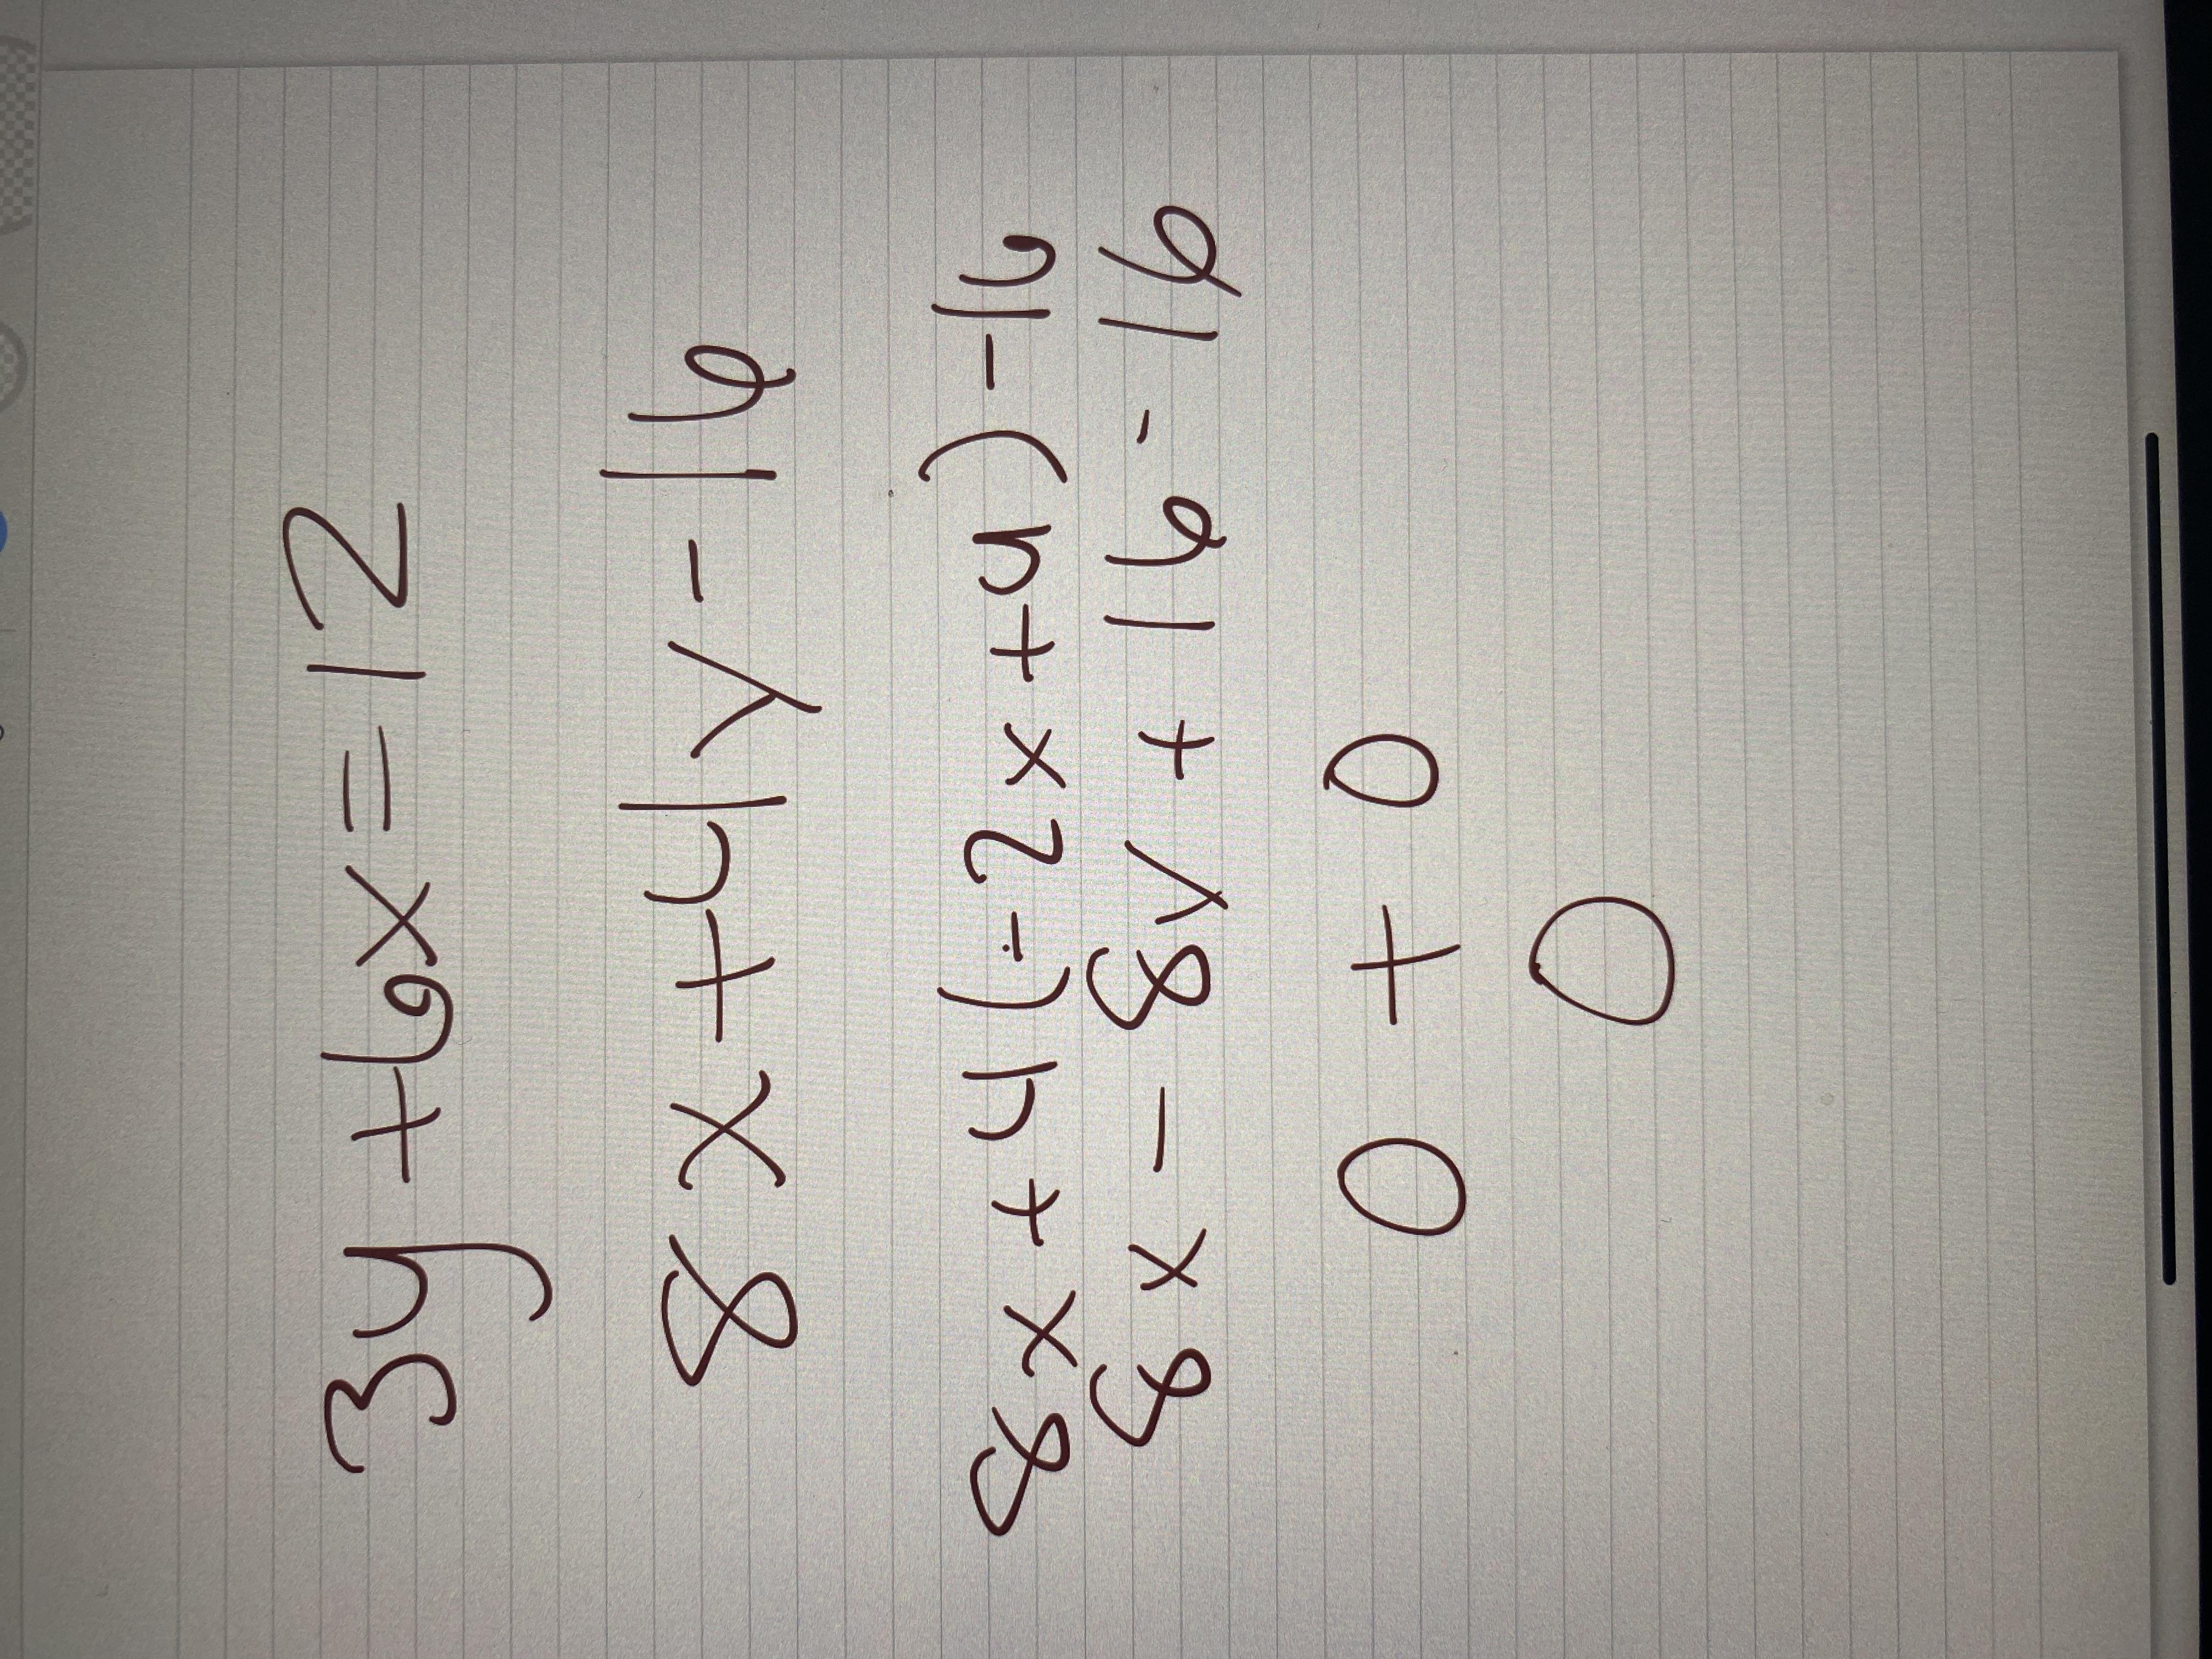 3y+6x=12
8x+4y-16
8x+4(-2x+4)-16
8x-8y+16-16
0+0
0